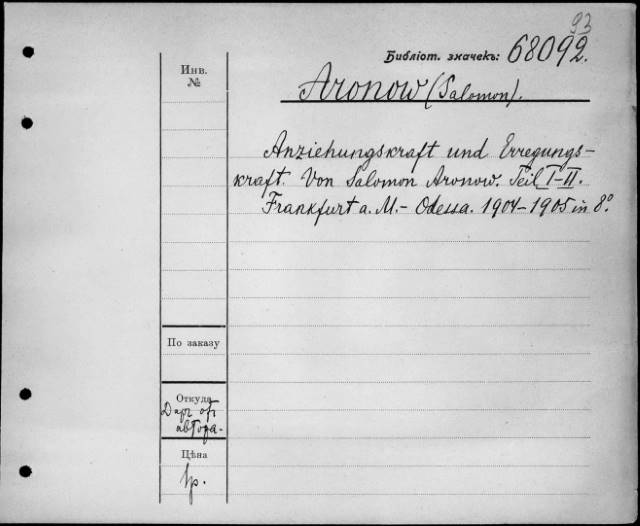 93
Библіот. значекъ: 68092.
Инв.
№
Aronow (Salomon).
Anziehungskraft und Erregungs-
kraft. Von Salomon Aronow. Teil I-II.
Frankfurt a. M. - Odessa. 1904-1905 in 8°
По заказу
Откуда
Даръ отъ
автора.
Цѣна